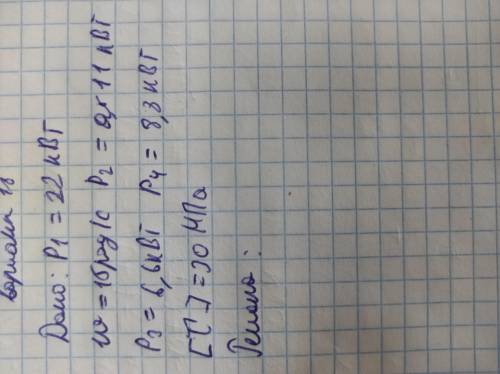 вариант 18
Дано: P1 = 22 кВт
ω = 15рад/с P2 = 11 кВт
P3 = 6,6кВт P4 = 8,3 кВт
[τ] = 30 МПа
Решение: